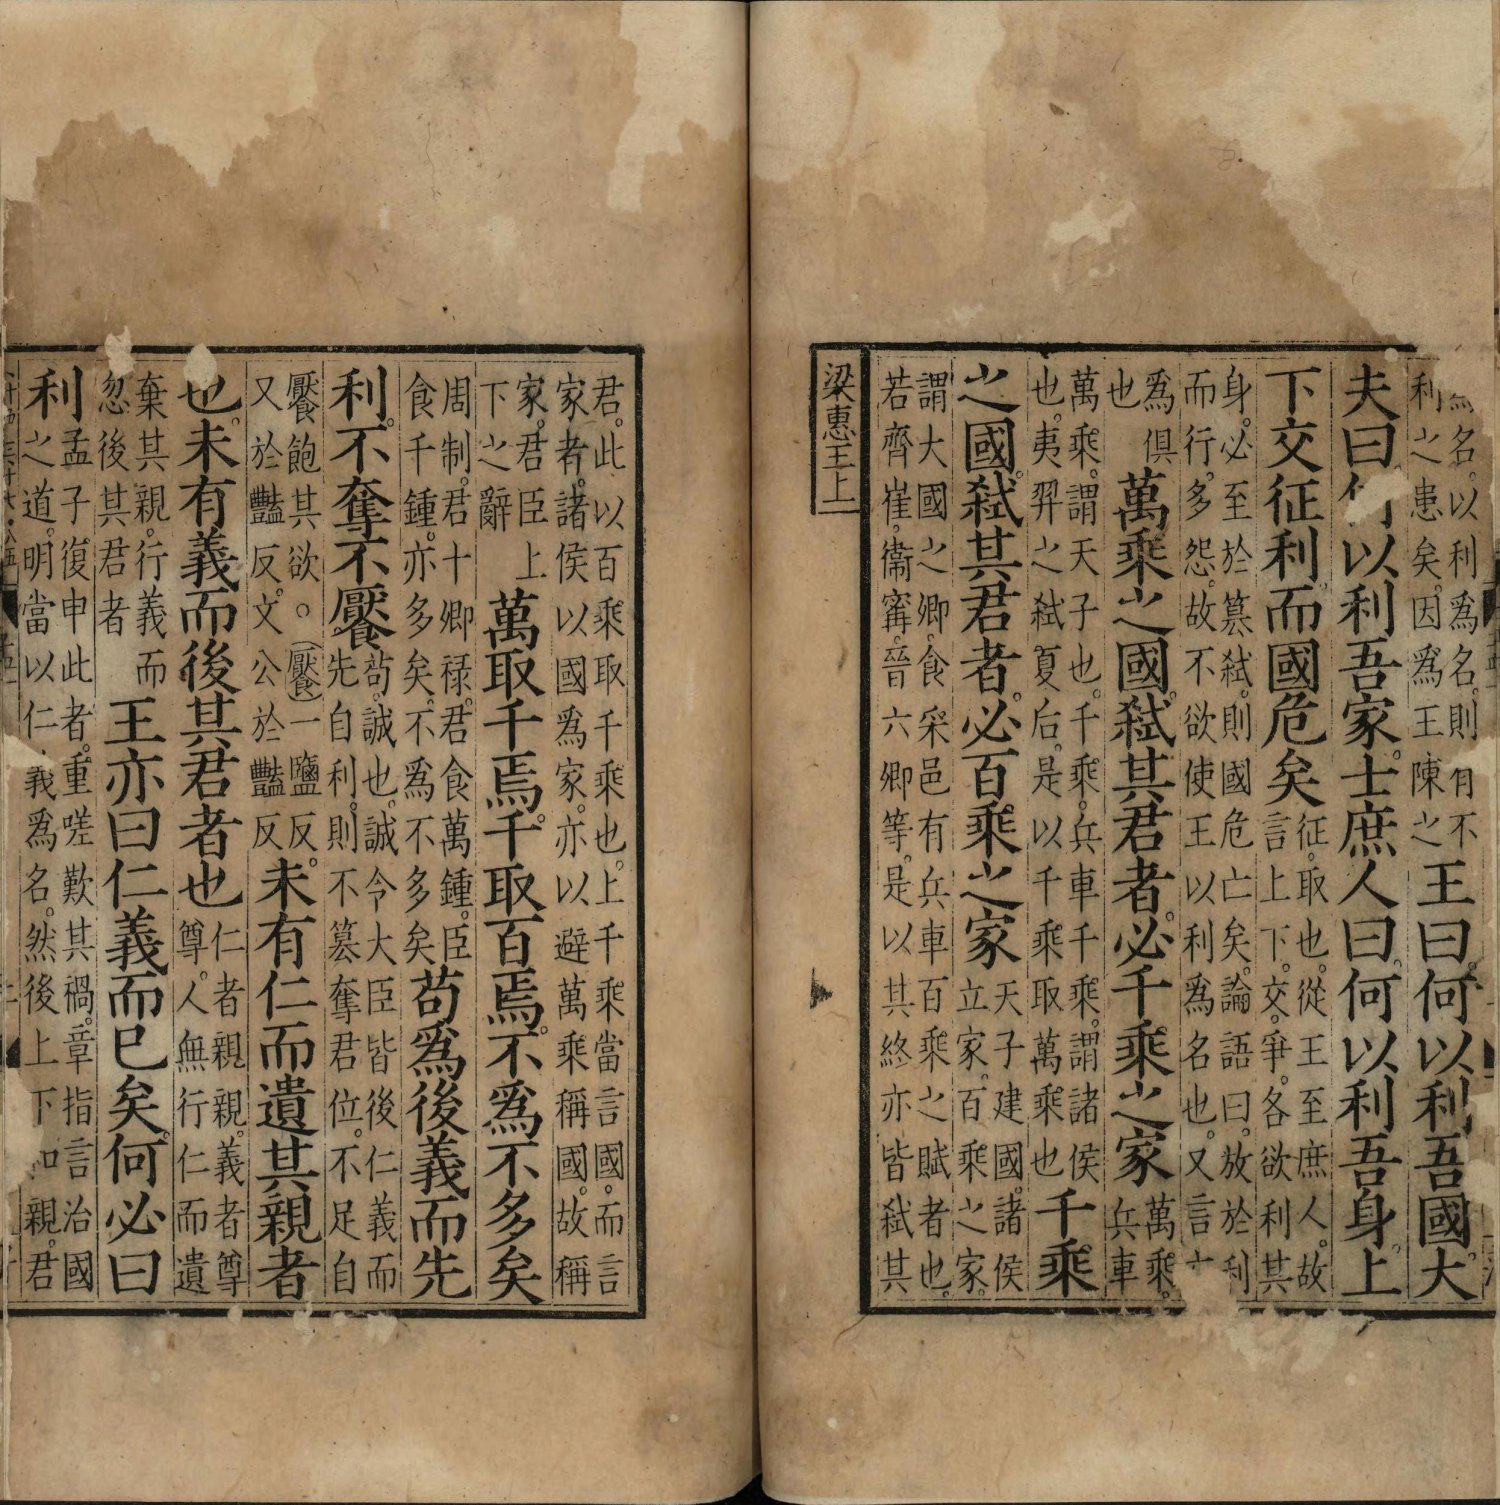 爲名。以利爲名。則有不利之患矣。因爲王陳之王曰。何以利吾國。大
夫曰。何以利吾家。士庶人曰。何以利吾身。上
下交征利。而國危矣征。取也。從王至庶人。故言上下。交爭。各欲利其
身。必至於篡弒。則國危亡矣。論語曰。放於利而行。多怨。故不欲使王以利爲名也。又言
爲俱也萬乘之國。弒其君者。必千乘之家萬乘。兵車
萬乘。謂天子也。千乘。兵車千乘。謂諸侯也。夷羿之弒夏后。是以千乘取萬乘也千乘
之國。弒其君者。必百乘之家天子建國。諸侯立家。百乘之家。
謂大國之卿。食采邑有兵車百乘之賦者也。若齊崔。衞甯。晉六卿等。是以其終亦皆弒其
梁惠王上
君。此以百乘取千乘也。上千乘當言國。而言家者。諸侯以國爲家。亦以避萬乘稱國。故稱
家。君臣上下之辭萬取千焉。千取百焉。不爲不多矣
周制。君十卿祿。君食萬鍾。臣食千鍾。亦多矣。不爲不多矣。苟爲後義而先
利。不奪不饜苟。誠也。誠令大臣皆後仁義而先自利。則不篡奪君位。不足自
饜飽其欲。○(饜)一鹽反。又於豔反。文公於豔反未有仁而遺其親者
也。未有義而後其君者也仁者親親。義者尊尊。人無行仁而遺
棄其親。行義而忽後其君者王亦曰仁義而已矣。何必曰
利孟子復申此者。重嗟歎其禍。章指言治國之道。明當以仁義爲名。然後上下和親。君